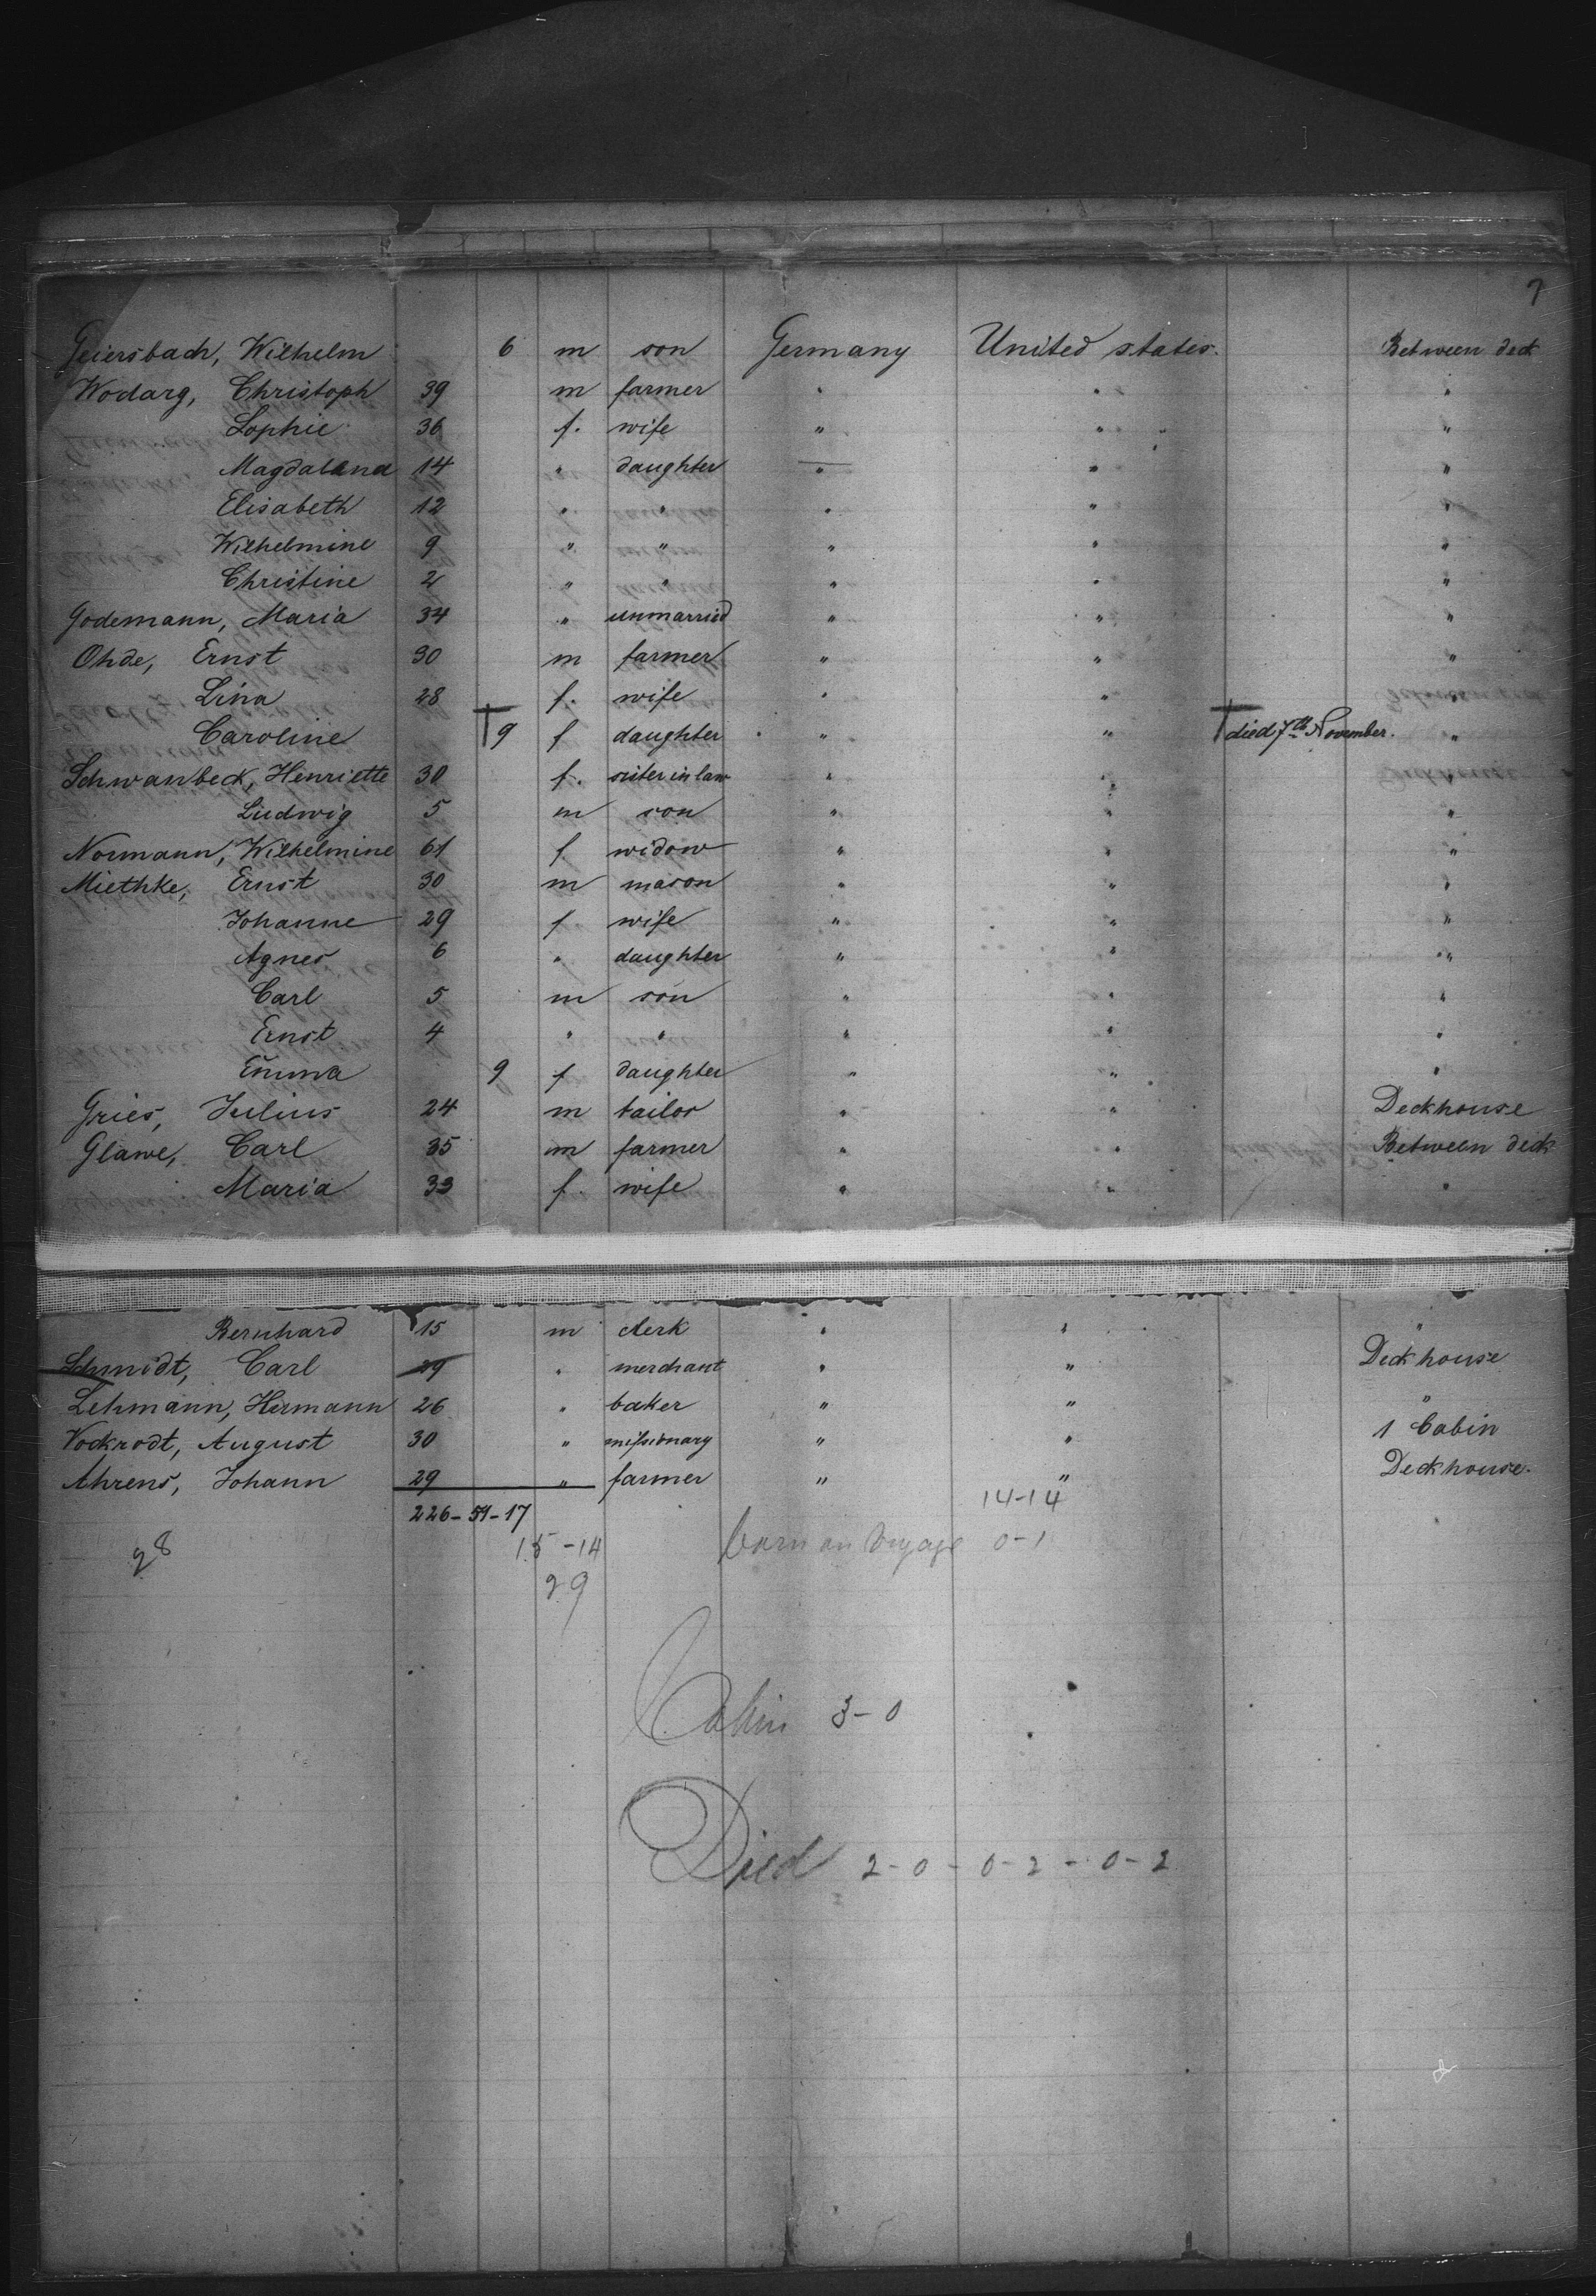 7
Geiersbach, Wilhelm 6 m son Germany United states. Between deck
Wodarg, Christoph 39 m farmer " " "
Sophie 36 f. wife " " "
Magdalena 14 " daughter " " "
Elisabeth 12 " " " " "
Wilhelmine 9 " " " " "
Christine 2 " " " " "
Godemann, Maria 34 " unmarried " " "
Ohde, Ernst 30 m farmer " " "
Lina 28 f. wife " " "
Caroline † 9 f daughter " " † died 7th November. "
Schwanbeck, Henriette 30 f. sister in law " "
Ludwig 5 m son " " "
Normann, Wilhelmine 61 f. widow " " "
Miethke, Ernst 30 m mason " " "
Johanne 29 f. wife " " "
Agnes 6 " daughter " " "
Carl 5 m son " " "
Ernst 4 " " " " "
Emma 9 f daughter " " "
Gries, Julius 24 m tailor " " Deckhouse
Glawe, Carl 35 m farmer " " Between deck
Maria 33 f. wife " " "
Bernhard 15 m clerk " " "
Schmidt, Carl 29 " merchant " " Deckhouse
Lehmann, Hermann 26 " baker " " "
Vockrodt, August 30 " missionary " " 1 Cabin
Ahrens, Johann 29 " farmer " " Deckhouse.
226-51-17 14-14
98 15-14 born on Voyage 0-1
29
Cabin 3-0
Died 2-0-0-2-0-2